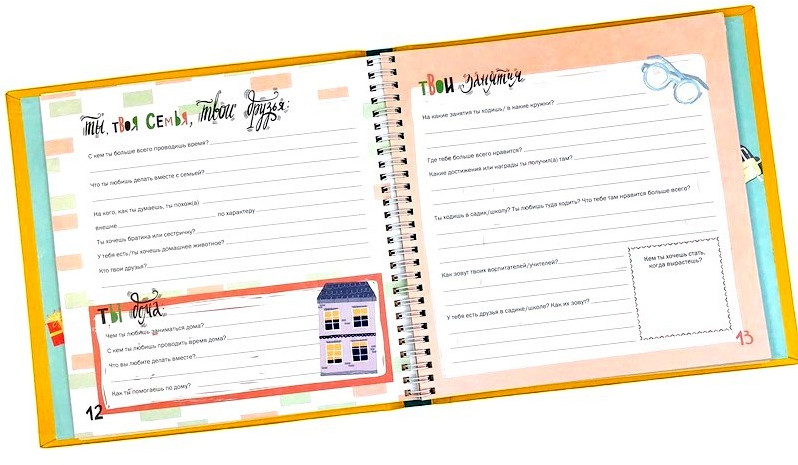 ты, твоя семья, твои друзья:
С кем ты больше всего проводишь время?
Что ты любишь делать вместе с семьей?
На кого, как ты думаешь, ты похож(а)
внешне по характеру
Ты хочешь братика или сестричку?
У тебя есть/ты хочешь домашнее животное?
Кто твои друзья?
ты дома:
Чем ты любишь заниматься дома?
С кем ты любишь проводить время дома?
Что вы любите делать вместе?
Как ты помогаешь по дому?
12
твои занятия
На какие занятия ты ходишь/ в какие кружки?
Где тебе больше всего нравится?
Какие достижения или награды ты получил(а) там?
Ты ходишь в садик/школу? Ты любишь туда ходить? Что тебе там нравится больше всего?
Как зовут твоих воспитателей/учителей?
Кем ты хочешь стать,
когда вырастешь?
У тебя есть друзья в садике/школе? Как их зовут?
13